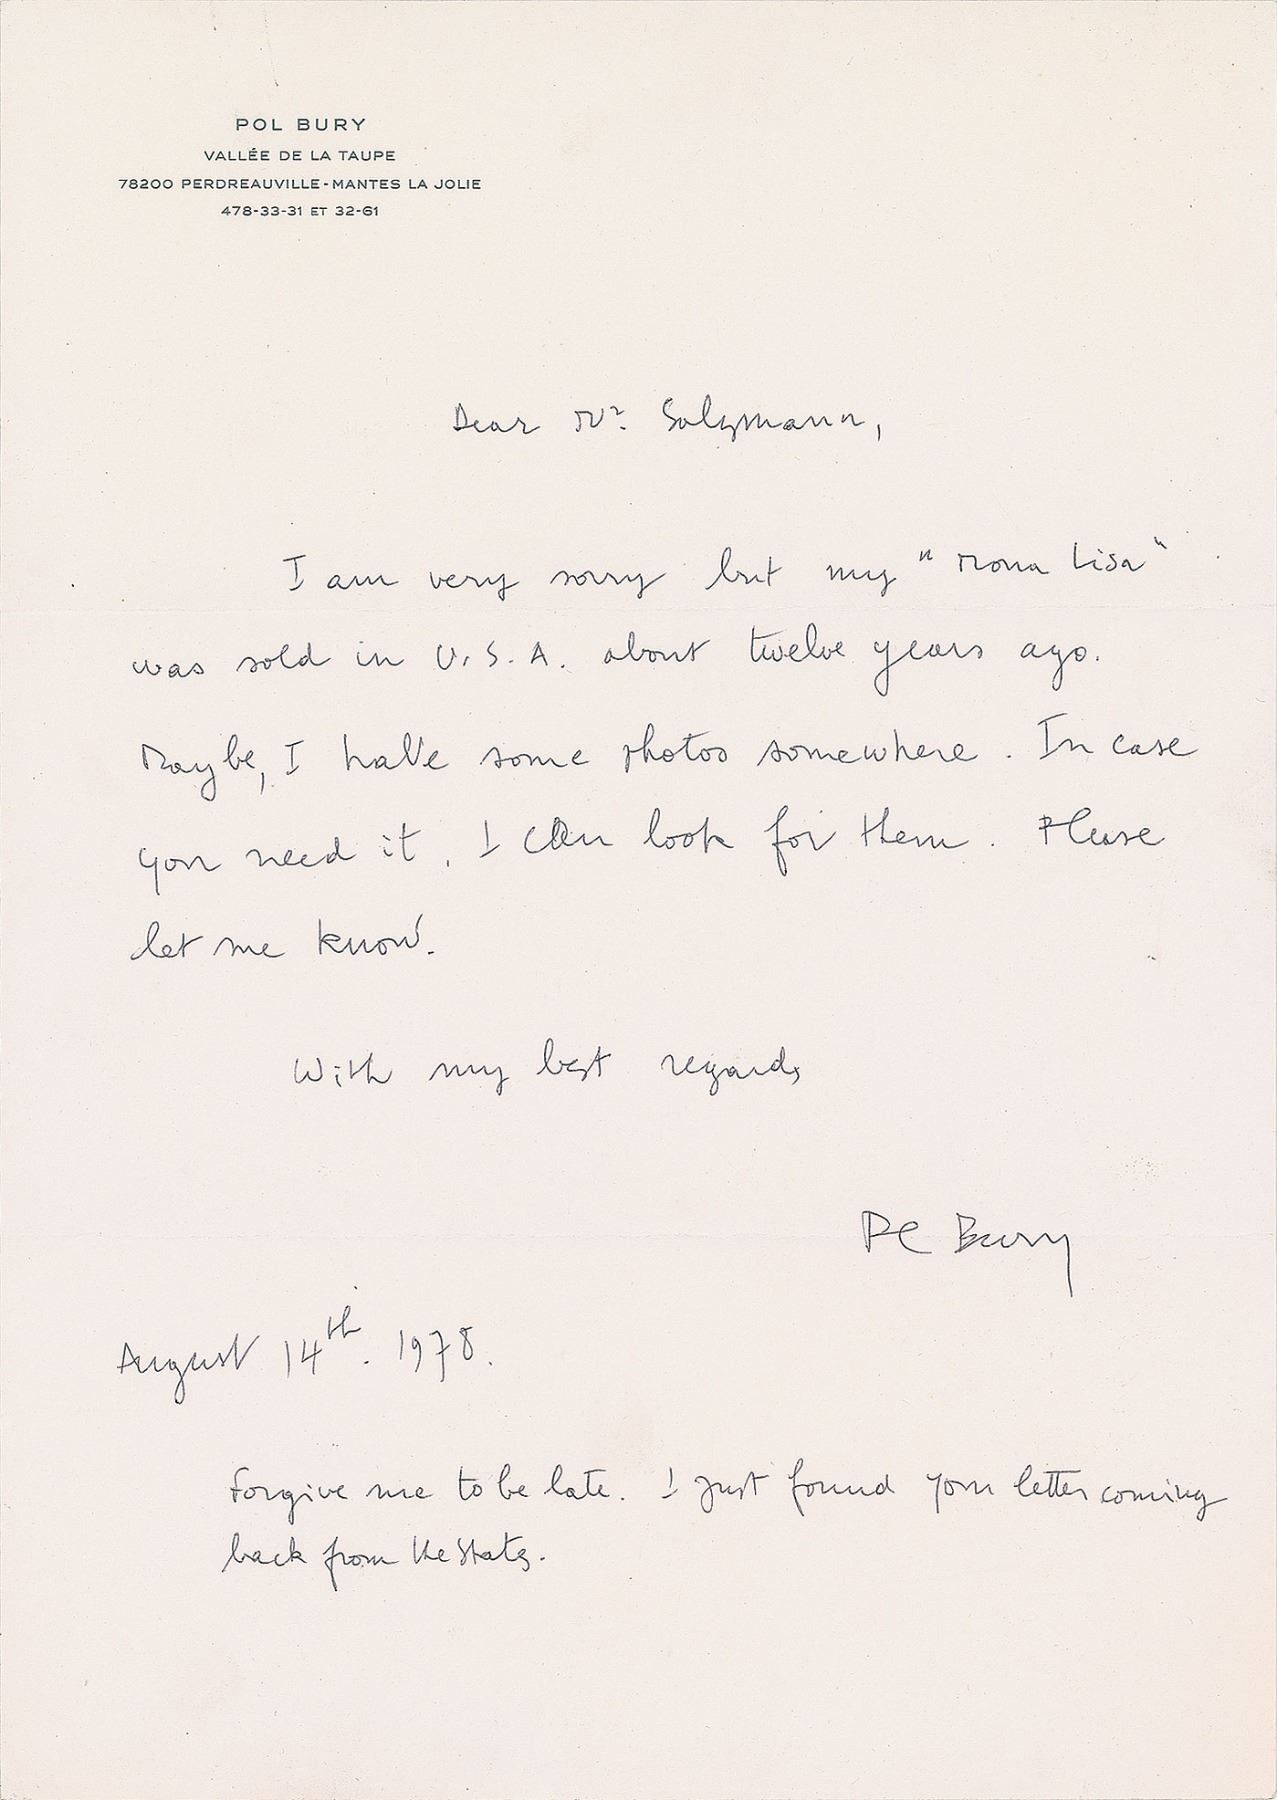 POL BURY
VALLÉE DE LA TAUPE
78200 PERDREAUVILLE-MANTES LA JOLIE
478-33-31 ET 32-61
Dear Mr. Salzmann,
I am very sorry but my "Mona Lisa"
was sold in U.S.A. about twelve years ago.
Maybe, I have some photos somewhere. In case
you need it, I can look for them. Please
let me know.
With my best regards
Pol Bury
August 14th. 1978.
Forgive me to be late. I just found your letter coming
back from the States.